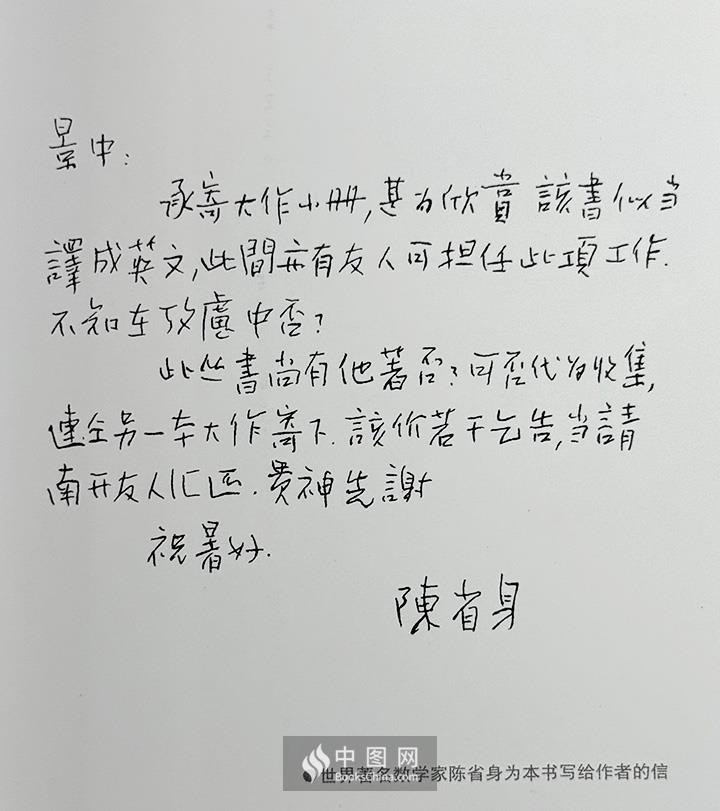 景中:
承寄大作小册,甚为欣賞 該書似当
譯成英文,此間亦有友人可担任此項工作.
不知在攷慮中否?
此丛書尚有他著否?可否代为收集,
連仝另一本大作寄下.該价若干乞告,当請
南开友人汇 . 費神先謝
祝暑好.
陳省身
中图网
BooksChina.com
世界著名数学家陈省身为本书写给作者的信